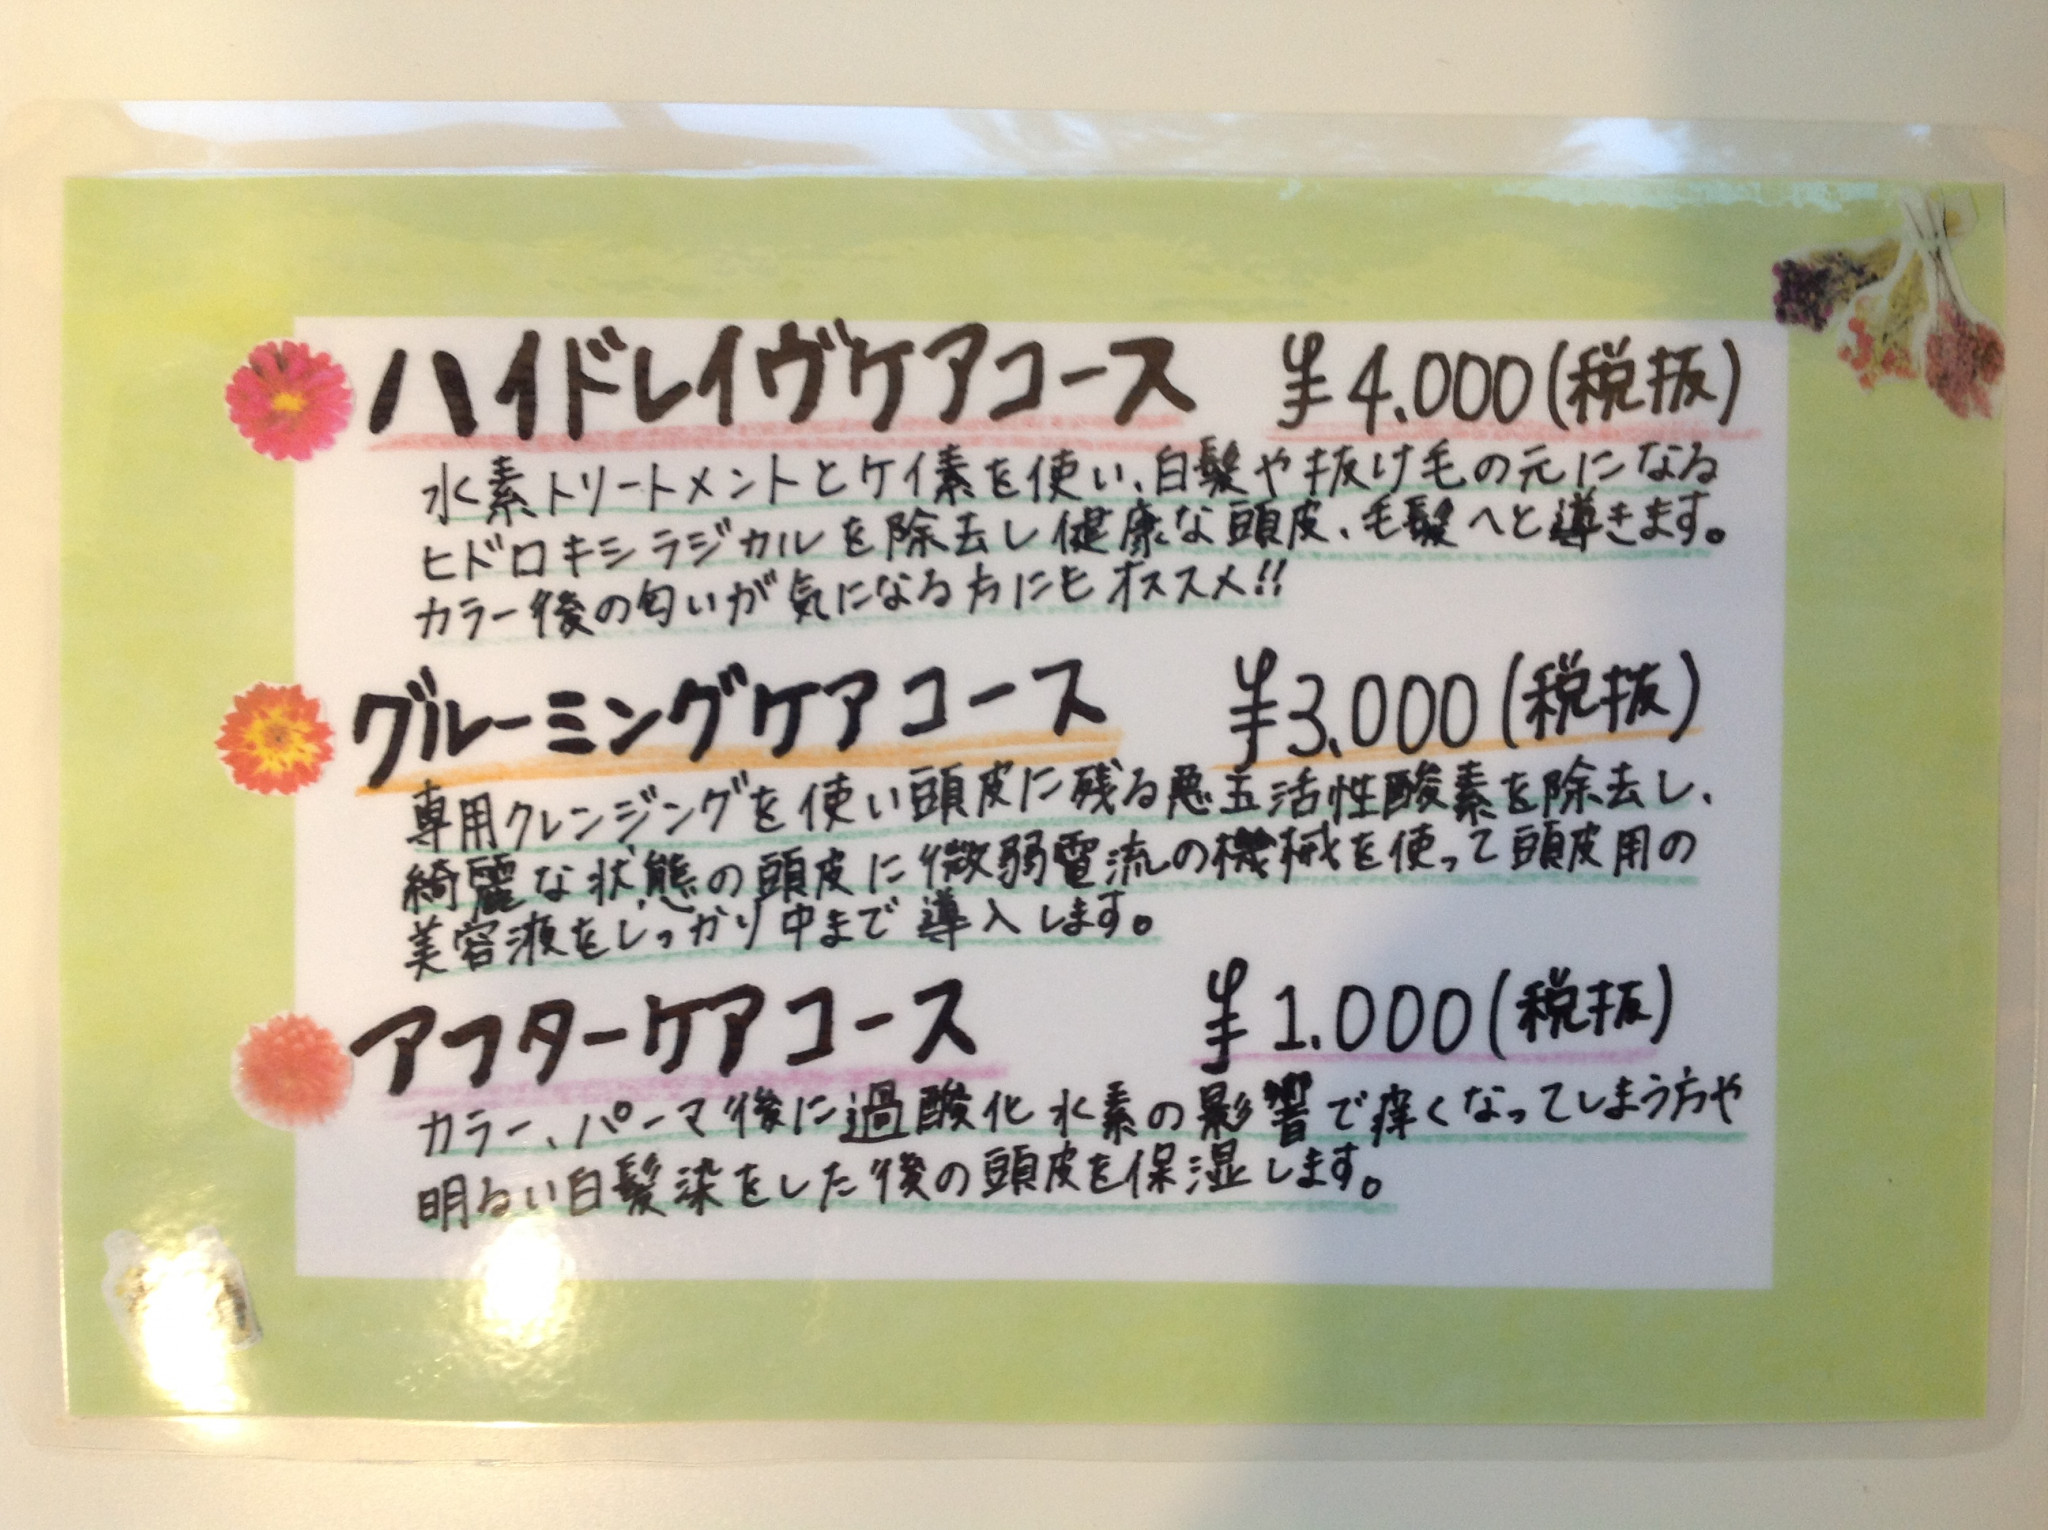 ハイドレイヴケアコース ¥4.000(税抜)
水素トリートメントとケイ素を使い、白髪や抜け毛の元になる
ヒドロキシラジカルを除去し健康な頭皮、毛髪へと導きます。
カラー後の匂いが気になる方にもオススメ!!
グルーミングケアコース ¥3.000(税抜)
専用クレンジングを使い頭皮に残る悪玉活性酸素を除去し、
綺麗な状態の頭皮に微弱電流の機械を使って頭皮用の
美容液をしっかり中まで導入します。
アフターケアコース ¥1.000(税抜)
カラー、パーマ後に過酸化水素の影響で痒くなってしまう方や
明るい白髪染をした後の頭皮を保湿します。